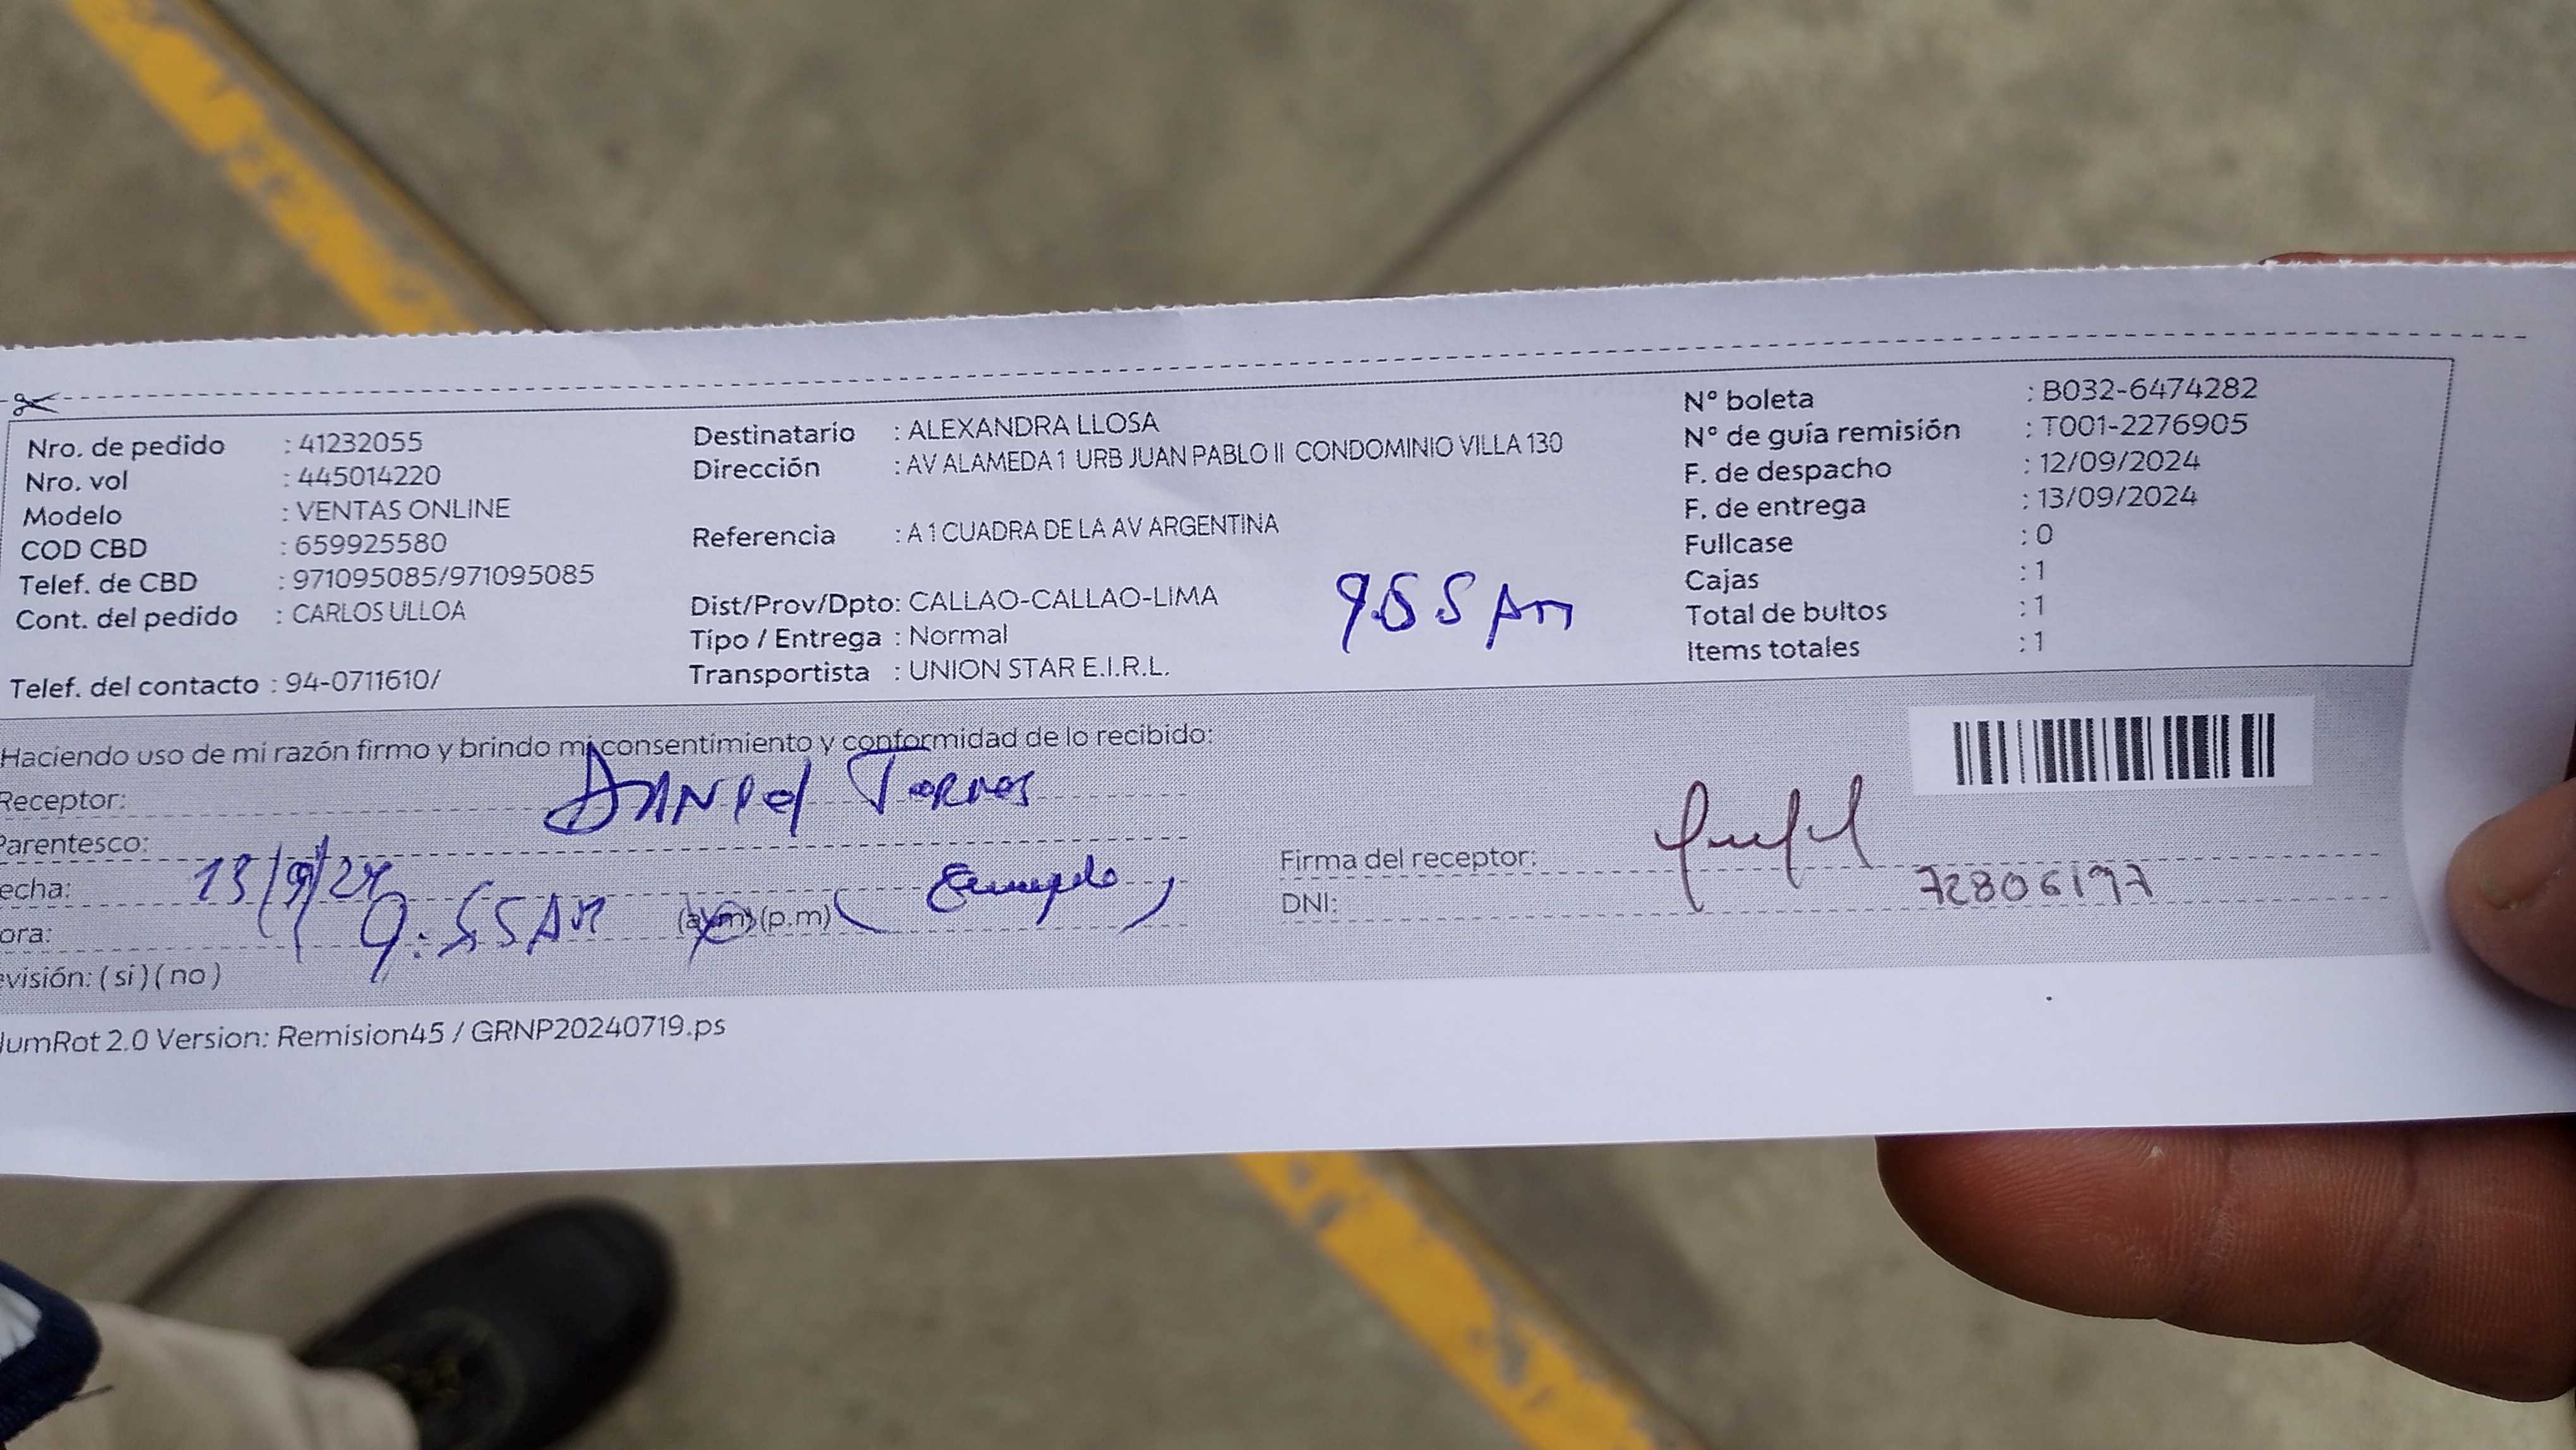 Nro. de pedido : 41232055
Nro. vol : 445014220
Modelo : VENTAS ONLINE
COD CBD : 659925580
Telef. de CBD : 971095085/971095085
Cont. del pedido : CARLOS ULLOA
Telef. del contacto : 94-0711610/
Destinatario : ALEXANDRA LLOSA
Dirección : AV ALAMEDA 1 URB JUAN PABLO II CONDOMINIO VILLA 130
Referencia : A 1 CUADRA DE LA AV ARGENTINA
Dist/Prov/Dpto: CALLAO-CALLAO-LIMA
Tipo / Entrega : Normal
Transportista : UNION STAR E.I.R.L.
9:55 AM
N° boleta : B032-6474282
N° de guía remisión : T001-2276905
F. de despacho : 12/09/2024
F. de entrega : 13/09/2024
Fullcase : 0
Cajas : 1
Total de bultos : 1
Items totales : 1
Haciendo uso de mi razón firmo y brindo mi consentimiento y conformidad de lo recibido:
Receptor: DANIEL TORRES
Parentesco:
echa: 13/9/24
ora: 9:55 AM (a.m) (p.m)
evisión: ( si ) ( no )
Firma del receptor:
DNI: 72806197
umRot 2.0 Version: Remision45 / GRNP20240719.ps